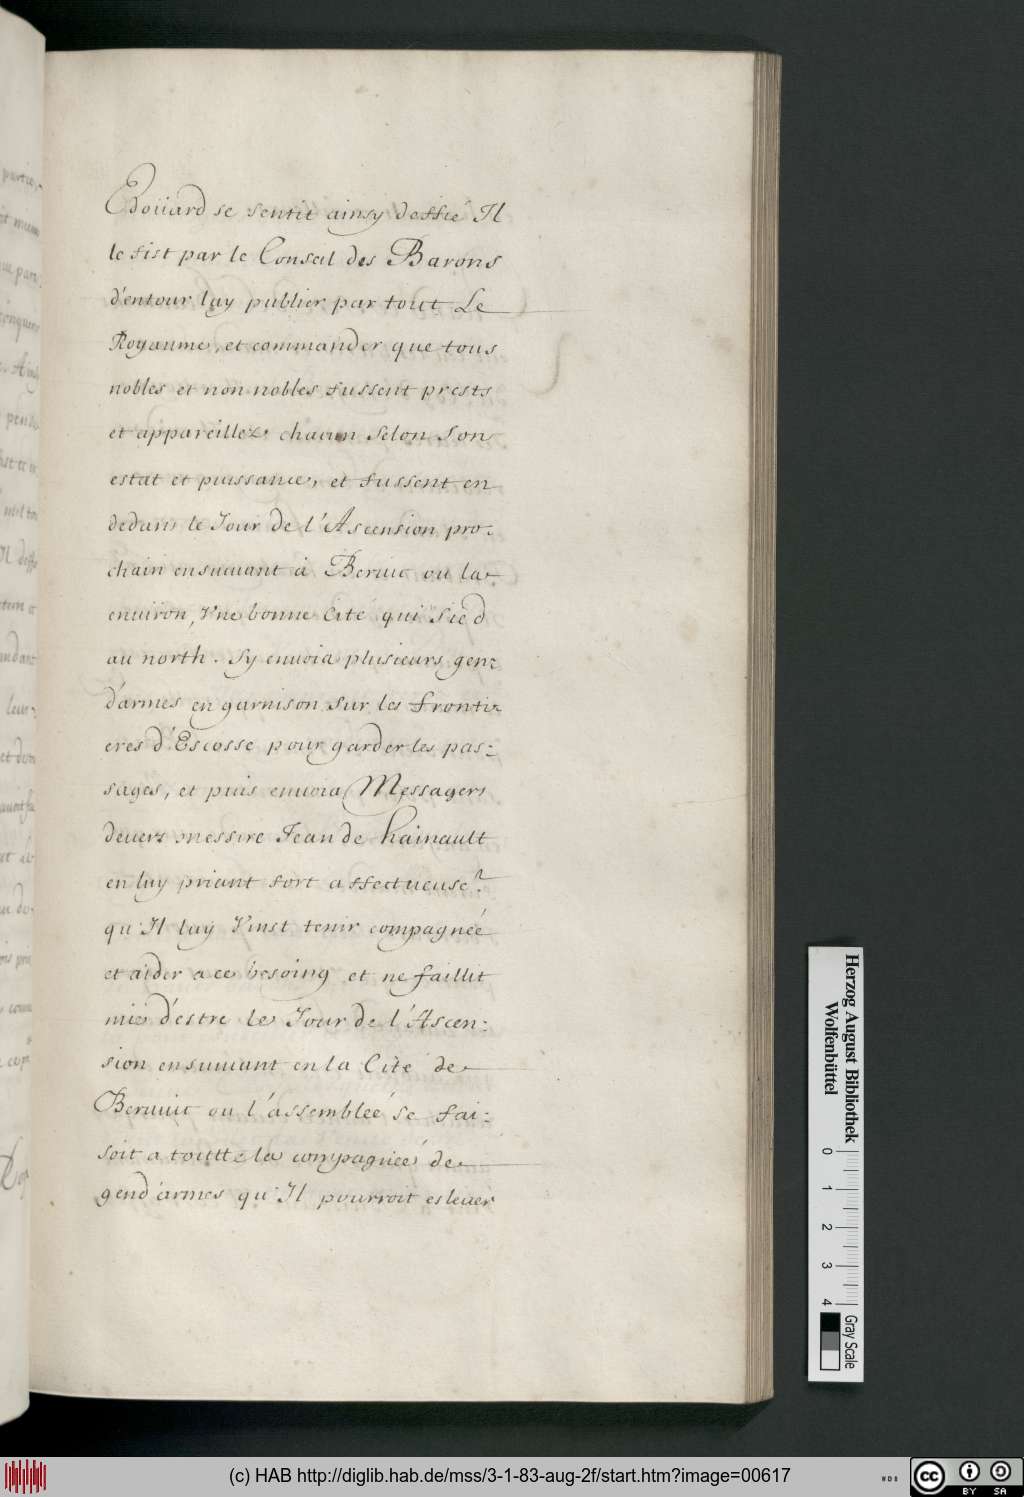 Edoüard se sentit ainsy deffié Il
le fist par le Conseil des Barons
d'entour luy publier par tout Le
Royaume, et commander que tous
nobles et non nobles fussent prests
et appareillez chacun selon son
estat et puissance, et fussent en
dedans le Jour de l'Ascension pro-
chain ensuivant à Beruic ou la
enuiron, Vne bonne Cité qui sied
au north. Sy enuoia plusieurs gen-
d'armes en garnison sur les fronti-
eres d'Escosse pour garder les pas-
sages, et puis enuoia Messagers
deuers messire Jean de hainault
en luy priant fort affectueuse.t
qu'Il luy Vinst tenir compagnée
et aider a ce besoing et ne faillit
mie d'estre le Jour de l'Ascen-
sion ensuiuant en la Cité de
Beruuic ou l'assemblée se fai-
soit a toutte la compagnée de
gend'armes qu'Il pourroit esleuer
Herzog August Bibliothek
Wolfenbüttel
0 1 2 3 4
Gray Scale
(c) HAB http://diglib.hab.de/mss/3-1-83-aug-2f/start.htm?image=00617
WDB
CC BY SA